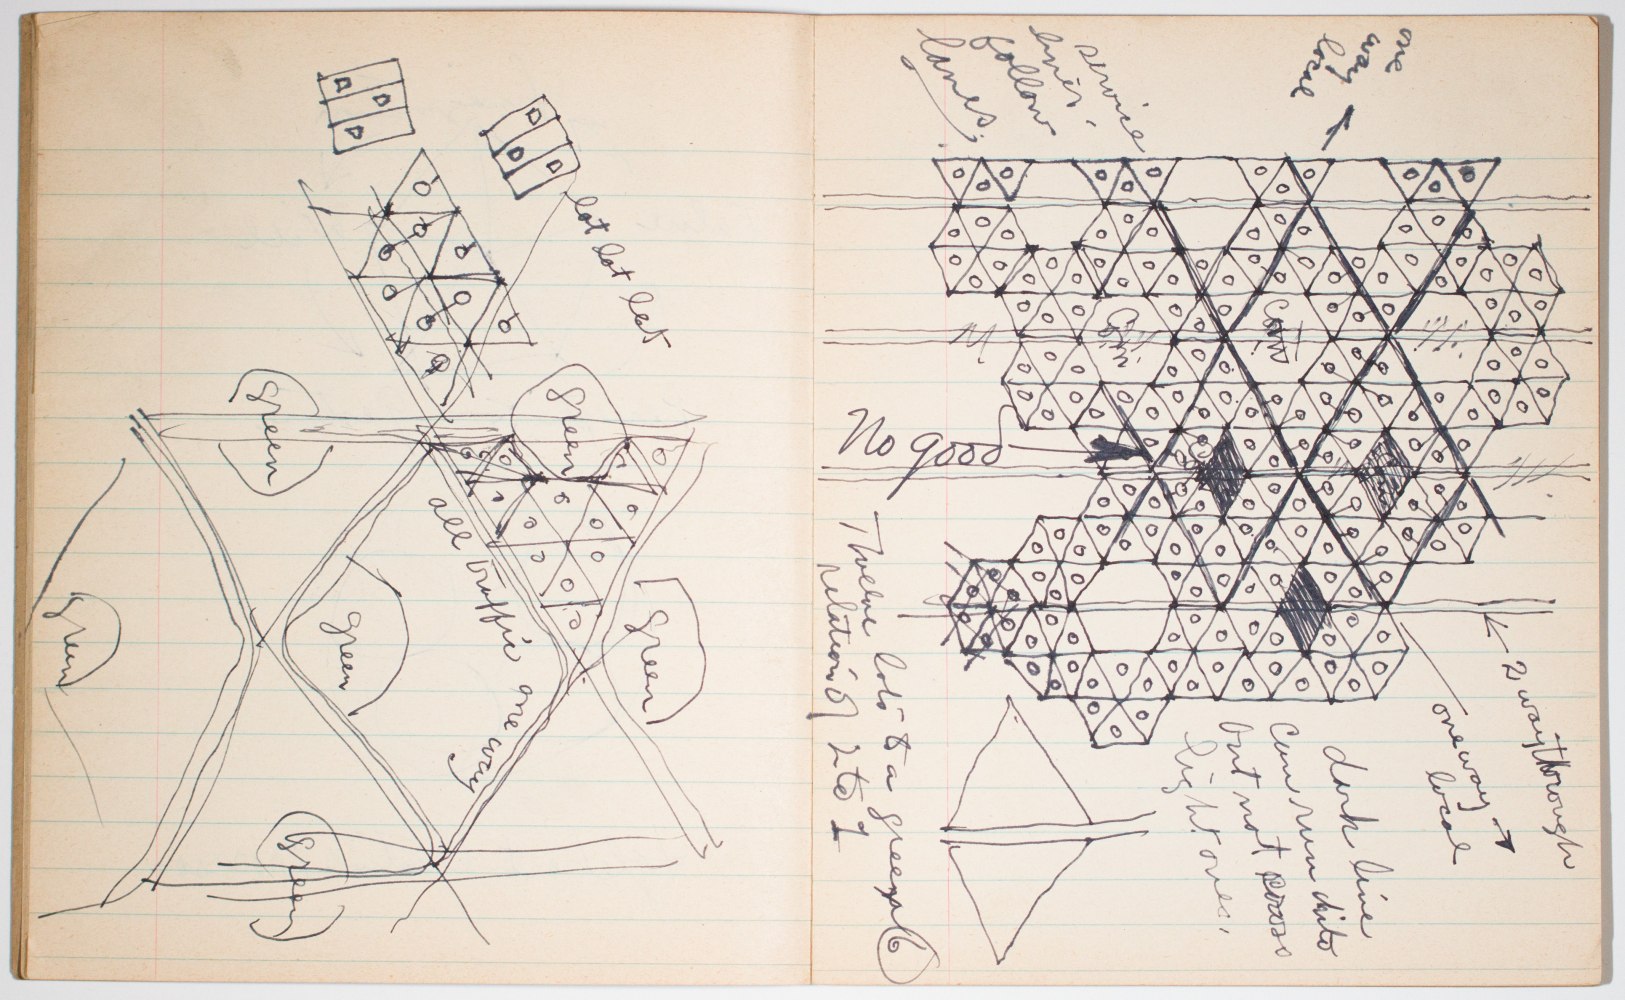 lot lot lot
green
green
green
green
green
green
all traffic one way
service
lines
follow
lanes.
one
way
local
Com
Com
No good
Twelve lots to a green
relation of 2 to 1
6
2 way through
one way
local
dark line
can run into
but not cross
light ones.